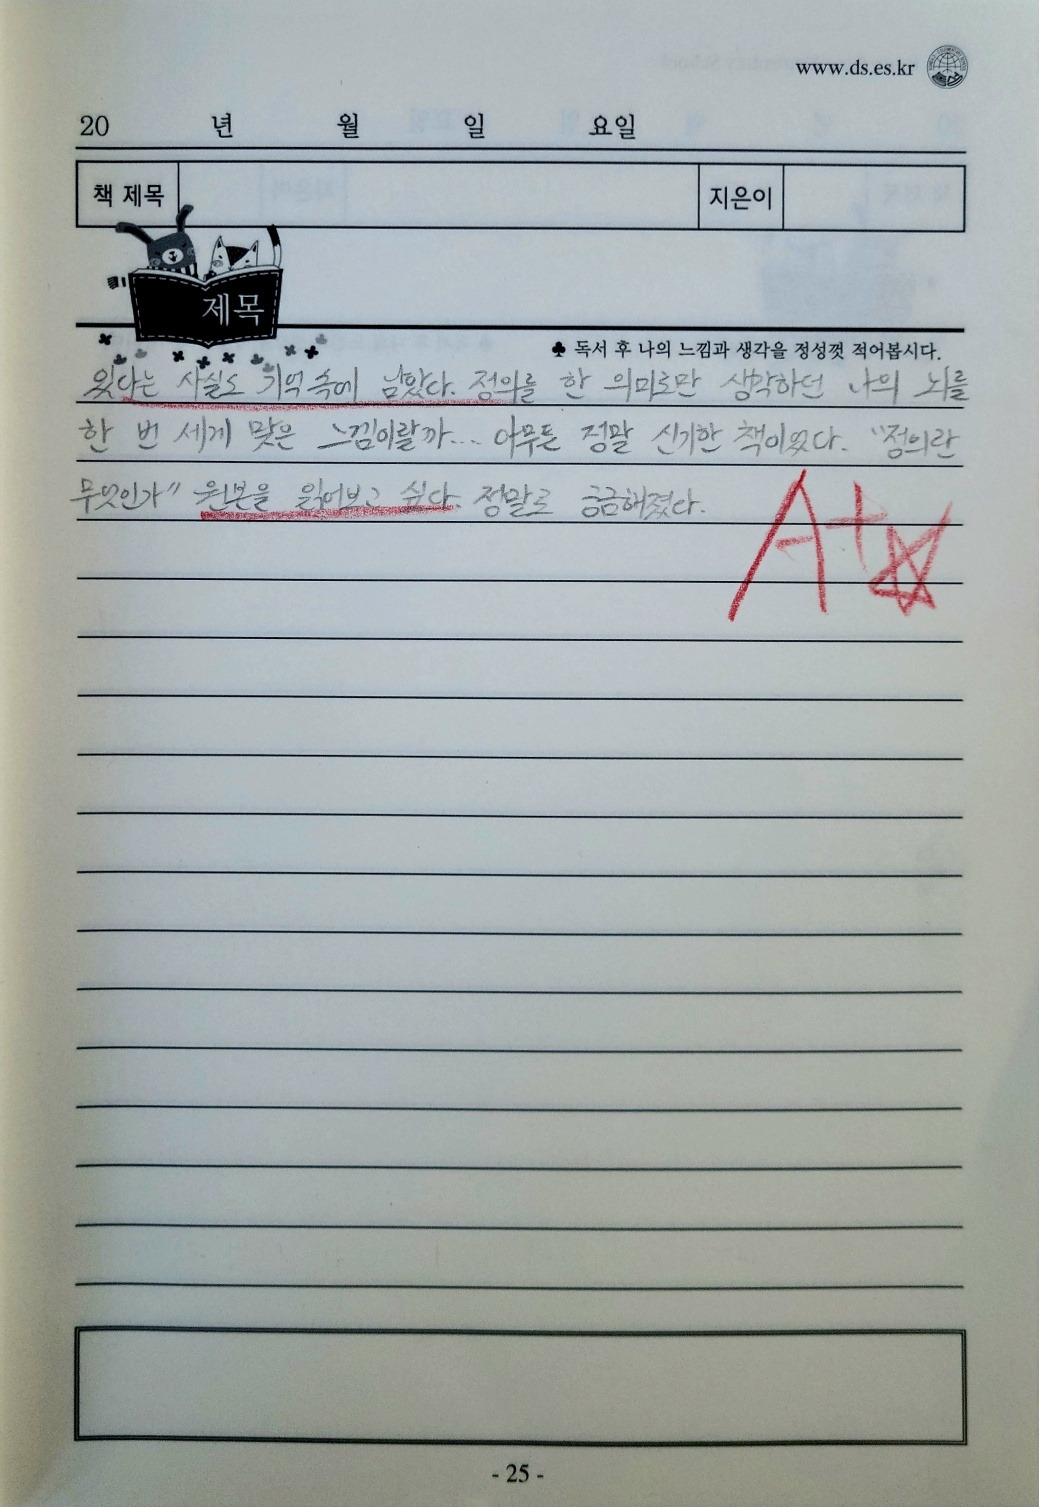 www.ds.es.kr
20 년 월 일 요일
책 제목 지은이
제목
♣ 독서 후 나의 느낌과 생각을 정성껏 적어봅시다.
있다는 사실도 기억 속에 남았다. 정의를 한 의미로만 생각하던 나의 뇌를
한 번 세게 맞은 느낌이랄까... 아무튼 정말 신기한 책이었다. "정의란
무엇인가" 원본을 읽어보고 싶다. 정말로 궁금해졌다.
A+
- 25 -